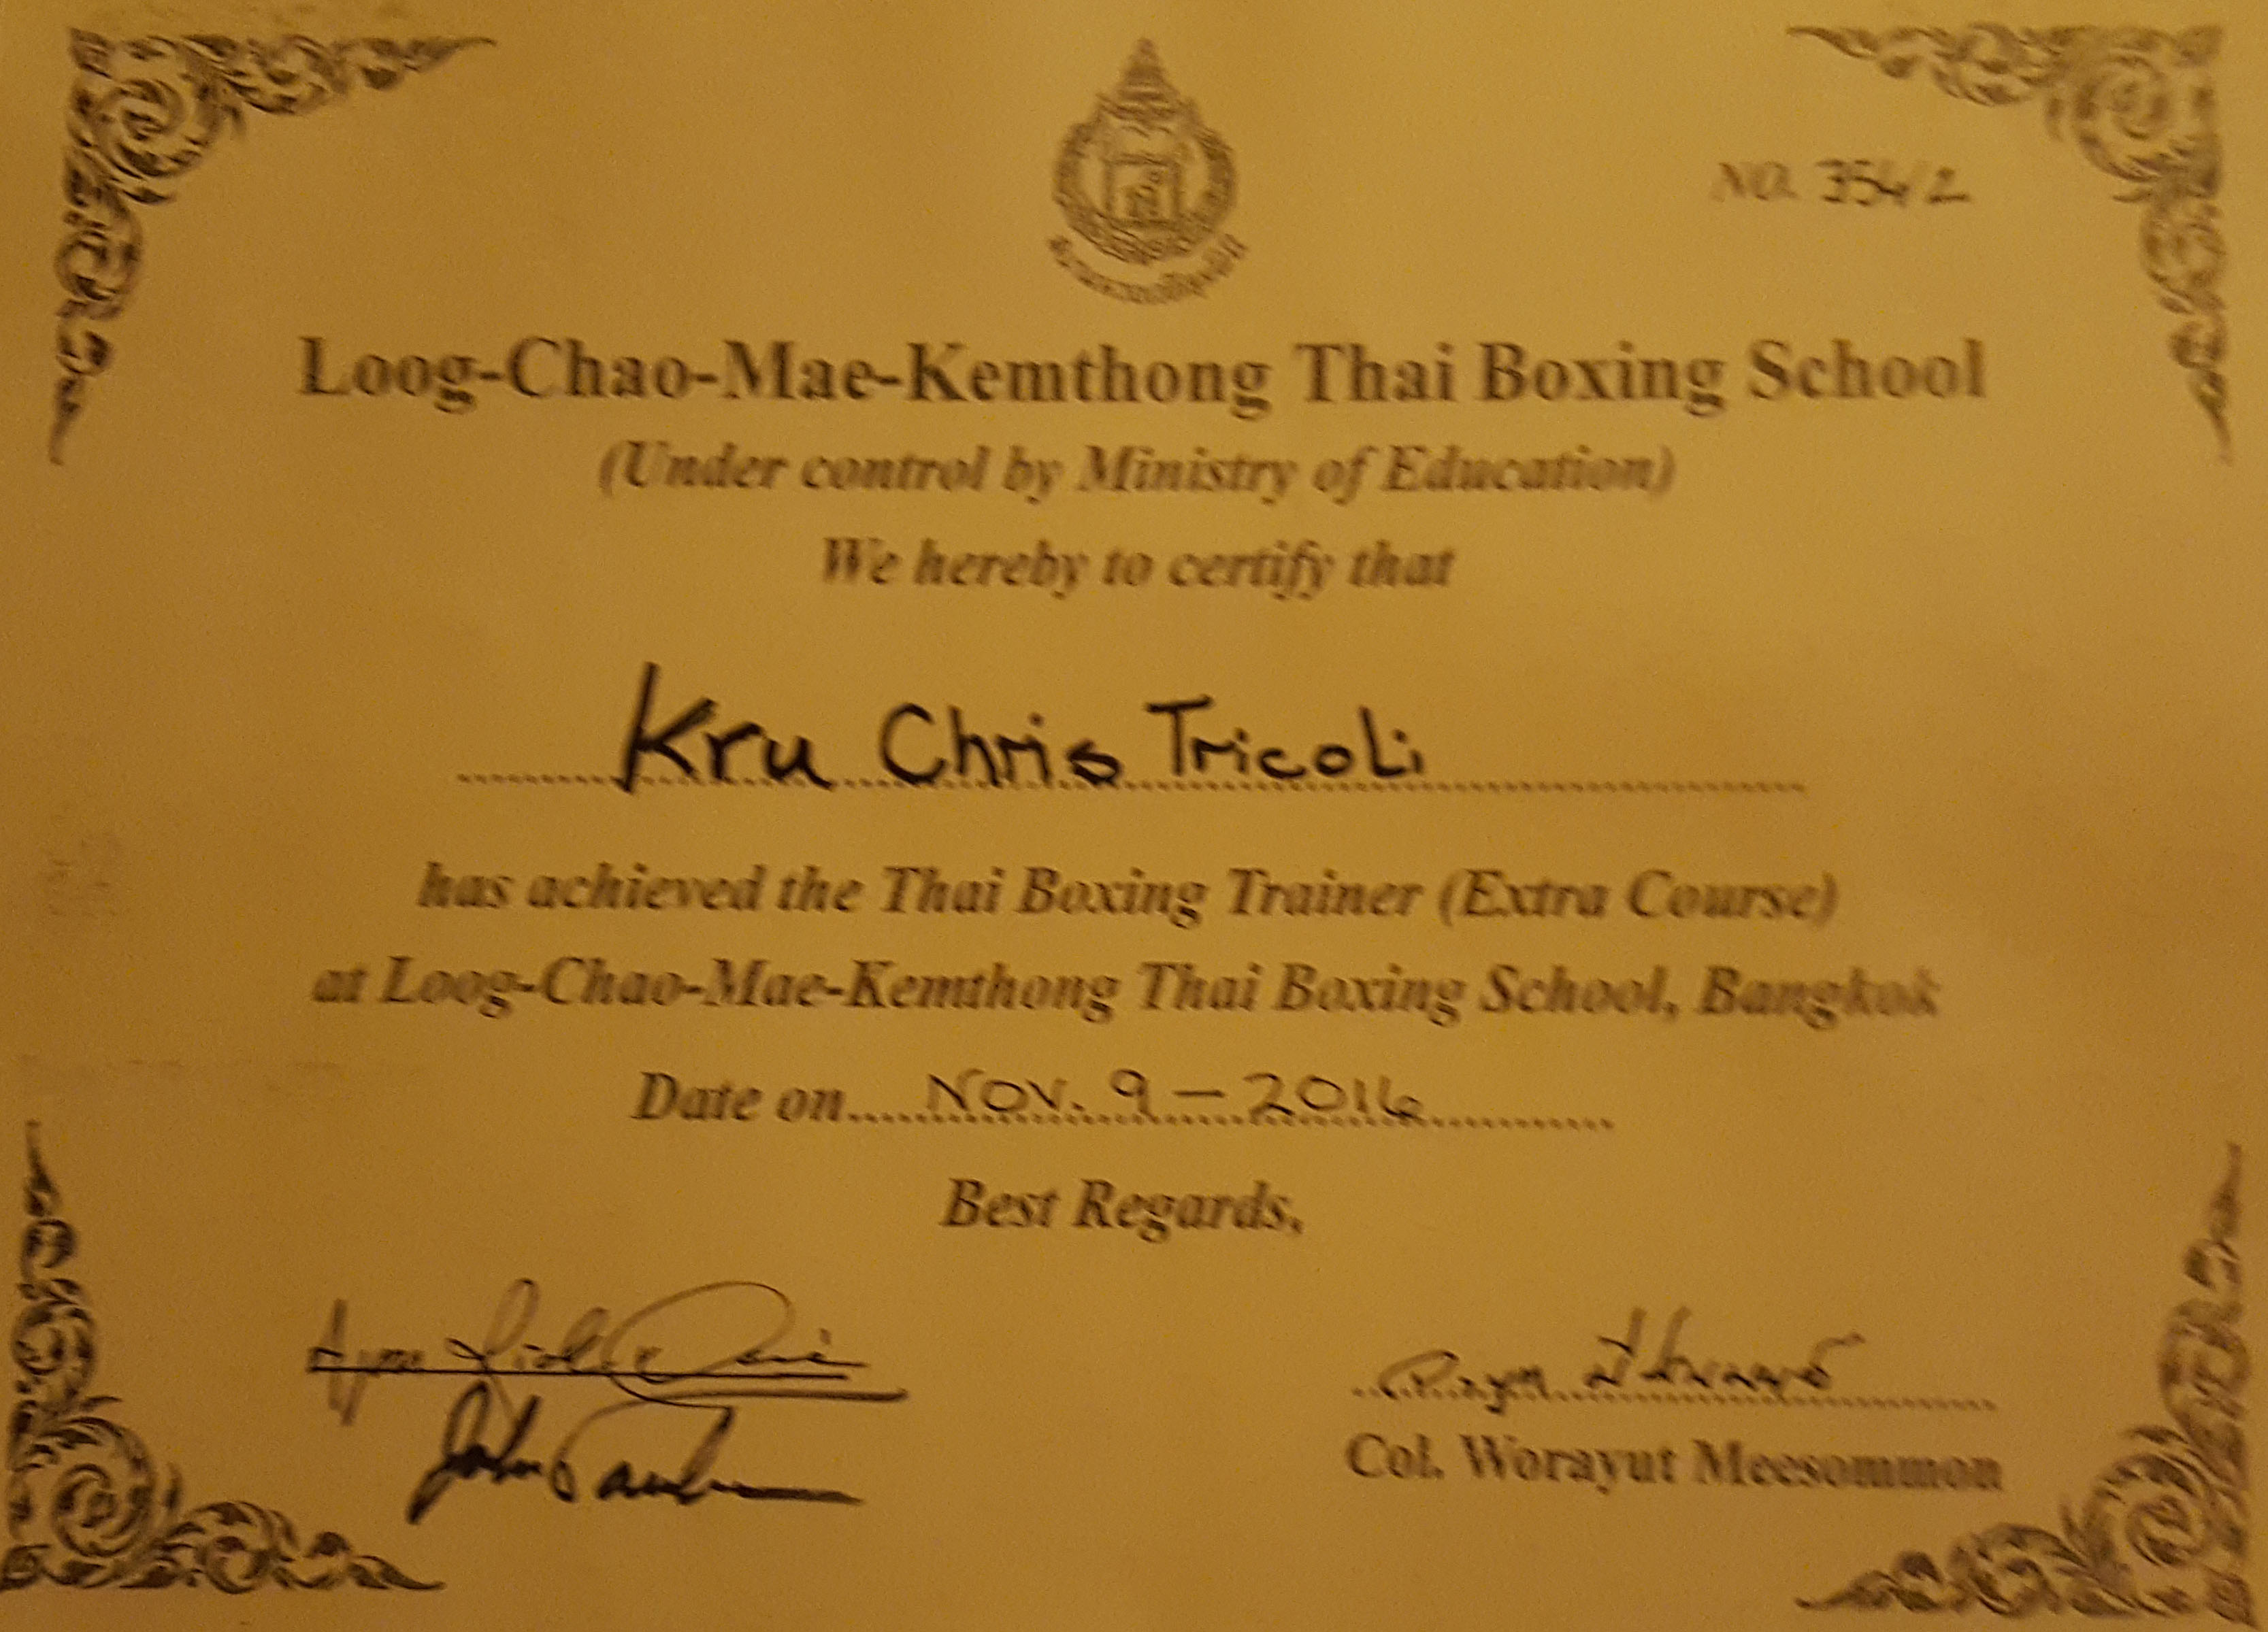 NO. 354/2
Loog-Chao-Mae-Kemthong Thai Boxing School
(Under control by Ministry of Education)
We hereby to certify that
Kru Chris Tricoli
has achieved the Thai Boxing Trainer (Extra Course)
at Loog-Chao-Mae-Kemthong Thai Boxing School, Bangkok
Date on Nov. 9 - 2016
Best Regards,
John
Col. Worayut Meesommon